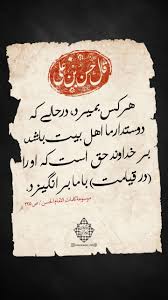 قال حسن بن علی
هر کس بمیرد، درحالے که
دوستدار ما اهل بیت باشد
بر خداوند حق است که او را
(در قیامت) با ما برانگیزد.
موسوعة کلمات الامام الحسن / ص ۲۲۵